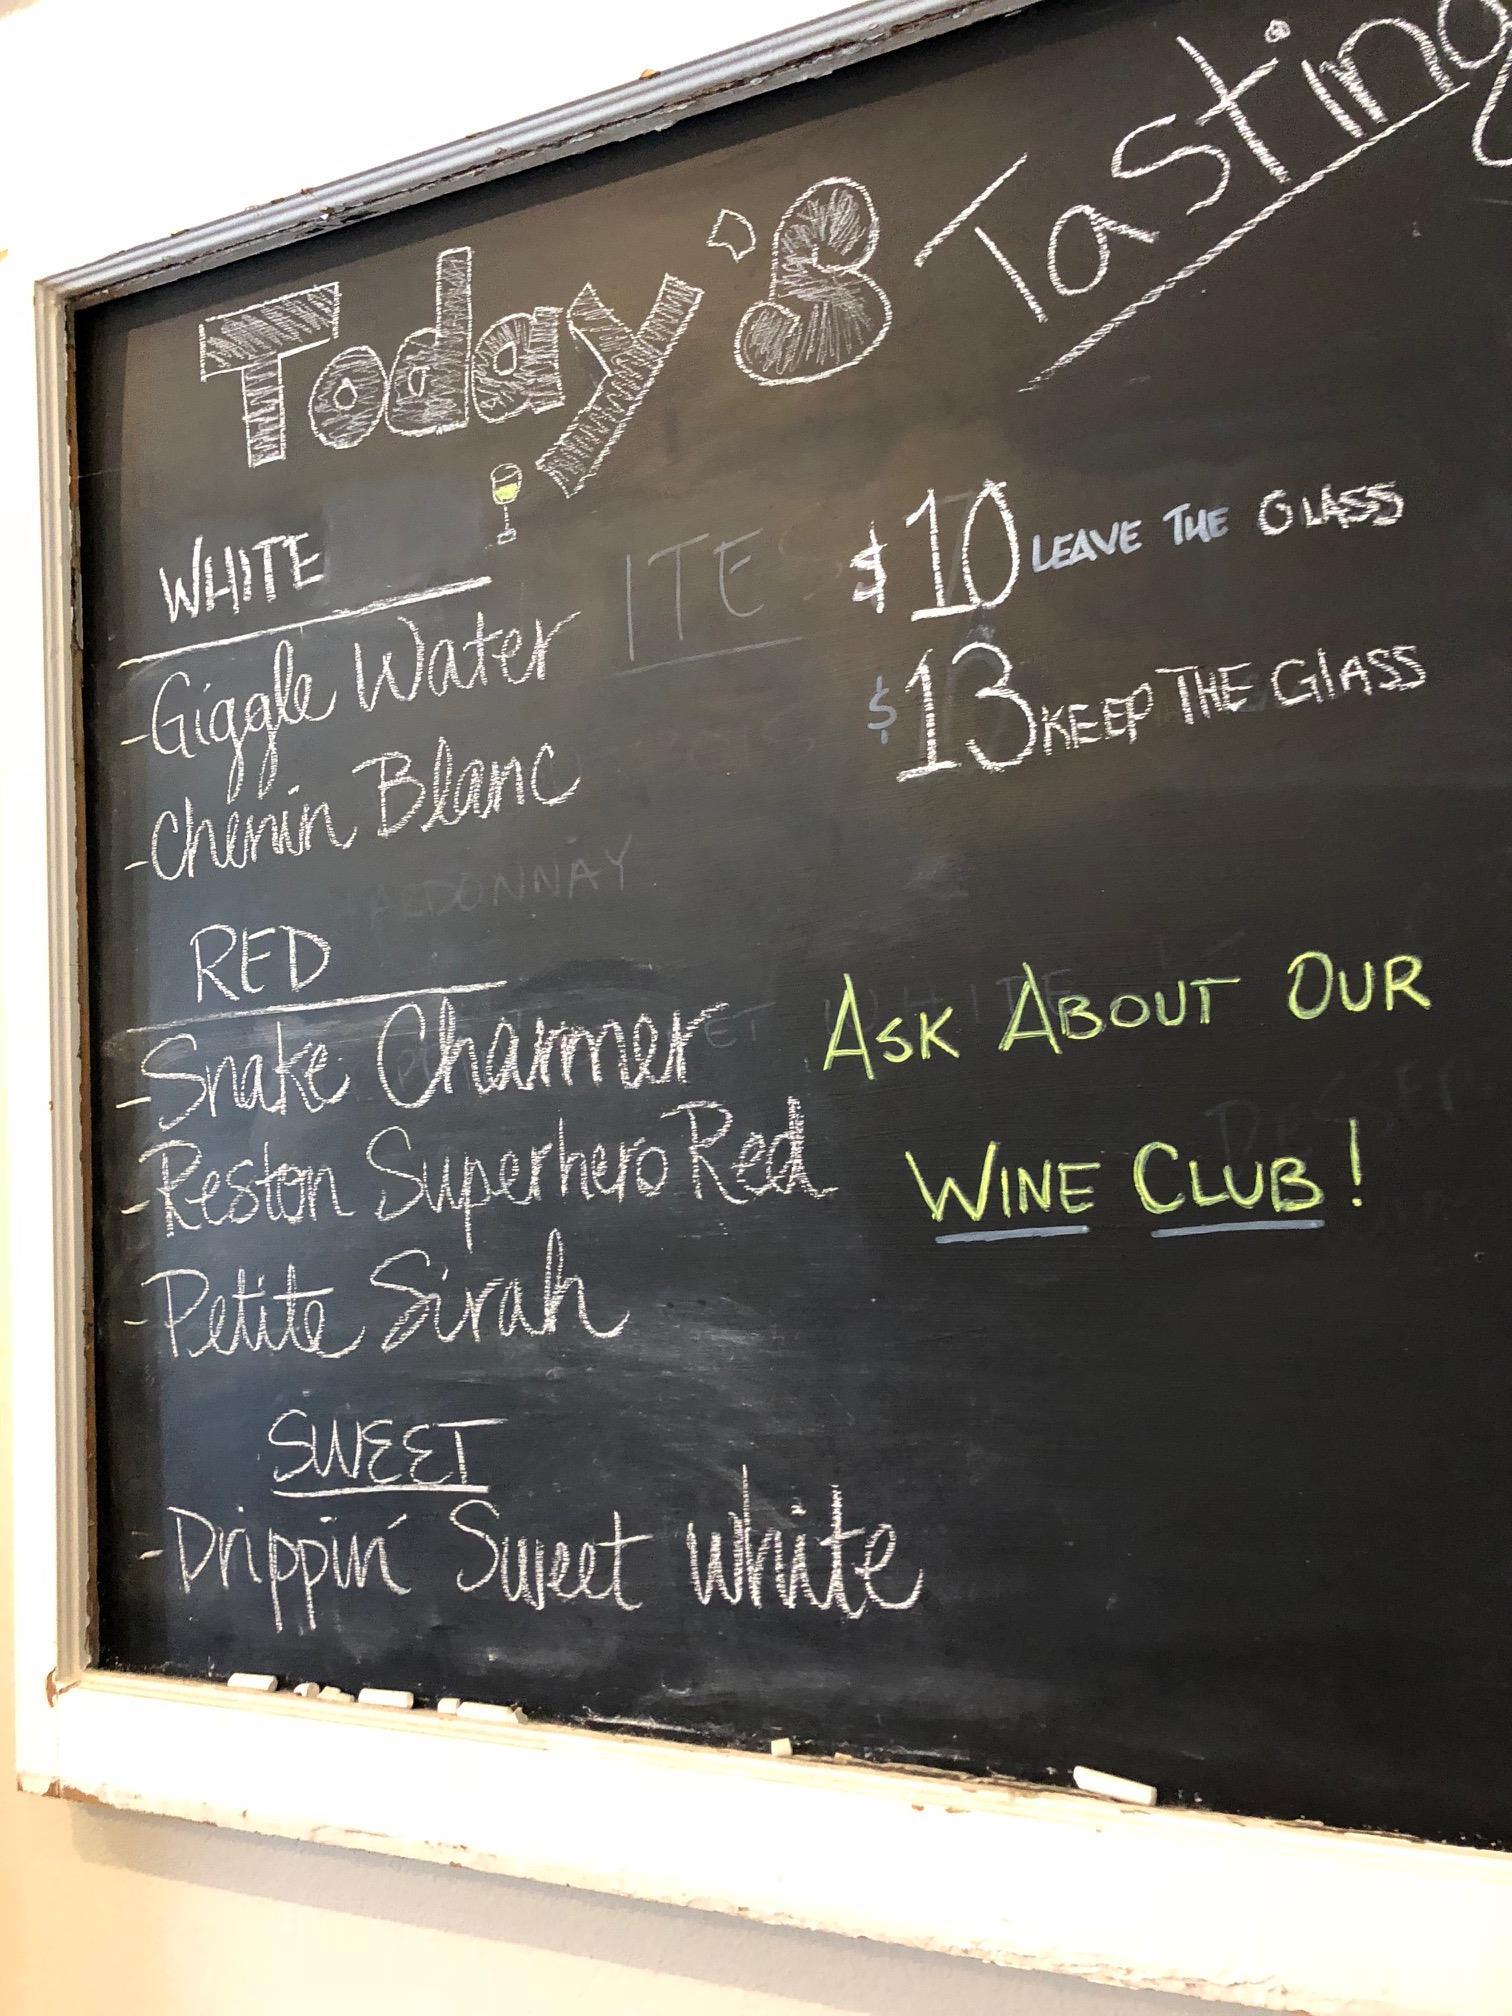 Today's Tasting
WHITE
-Giggle Water
-Chenin Blanc
RED
-Snake Charmer
-Reston Superhero Red
-Petite Sirah
SWEET
-Drippin' Sweet White
$10 LEAVE THE GLASS
$13 KEEP THE GLASS
ASK ABOUT OUR
WINE CLUB!
ITE